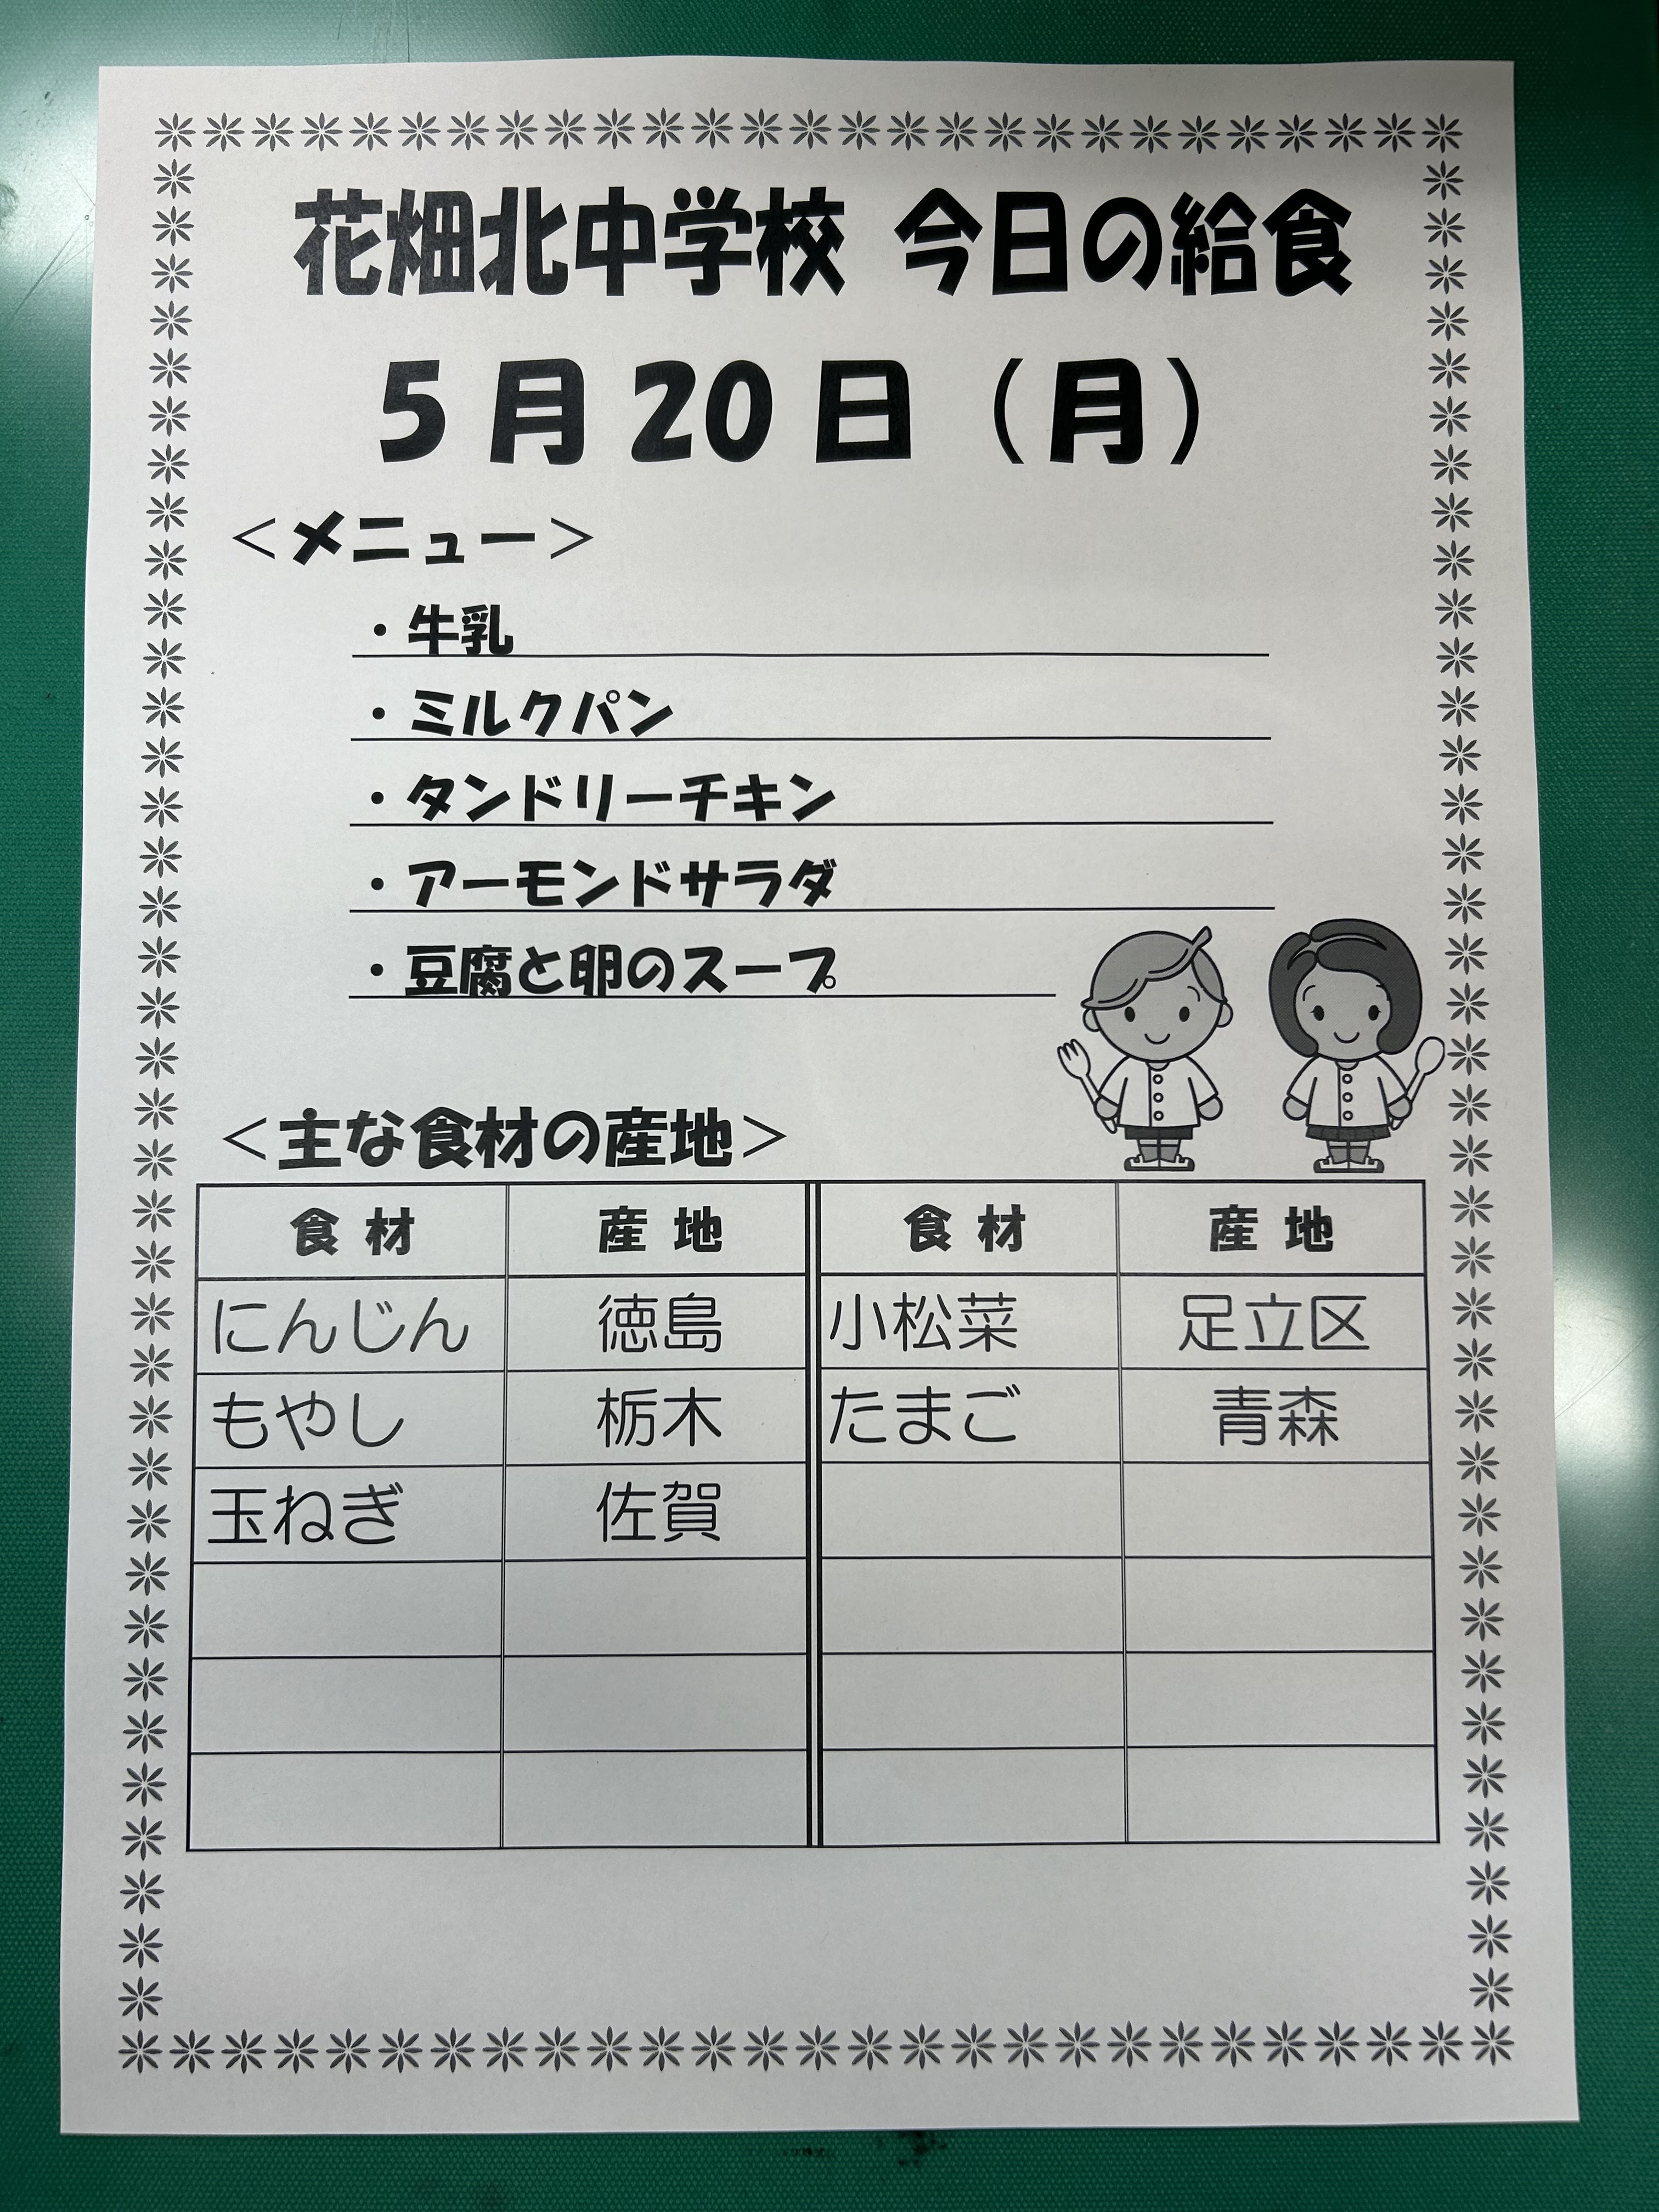 花畑北中学校 今日の給食
5月20日（月）
＜メニュー＞
・牛乳
・ミルクパン
・タンドリーチキン
・アーモンドサラダ
・豆腐と卵のスープ
＜主な食材の産地＞
食材 産地 食材 産地
にんじん 徳島 小松菜 足立区
もやし 栃木 たまご 青森
玉ねぎ 佐賀